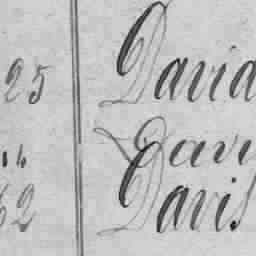 25 David
14 Davi
62 Davis